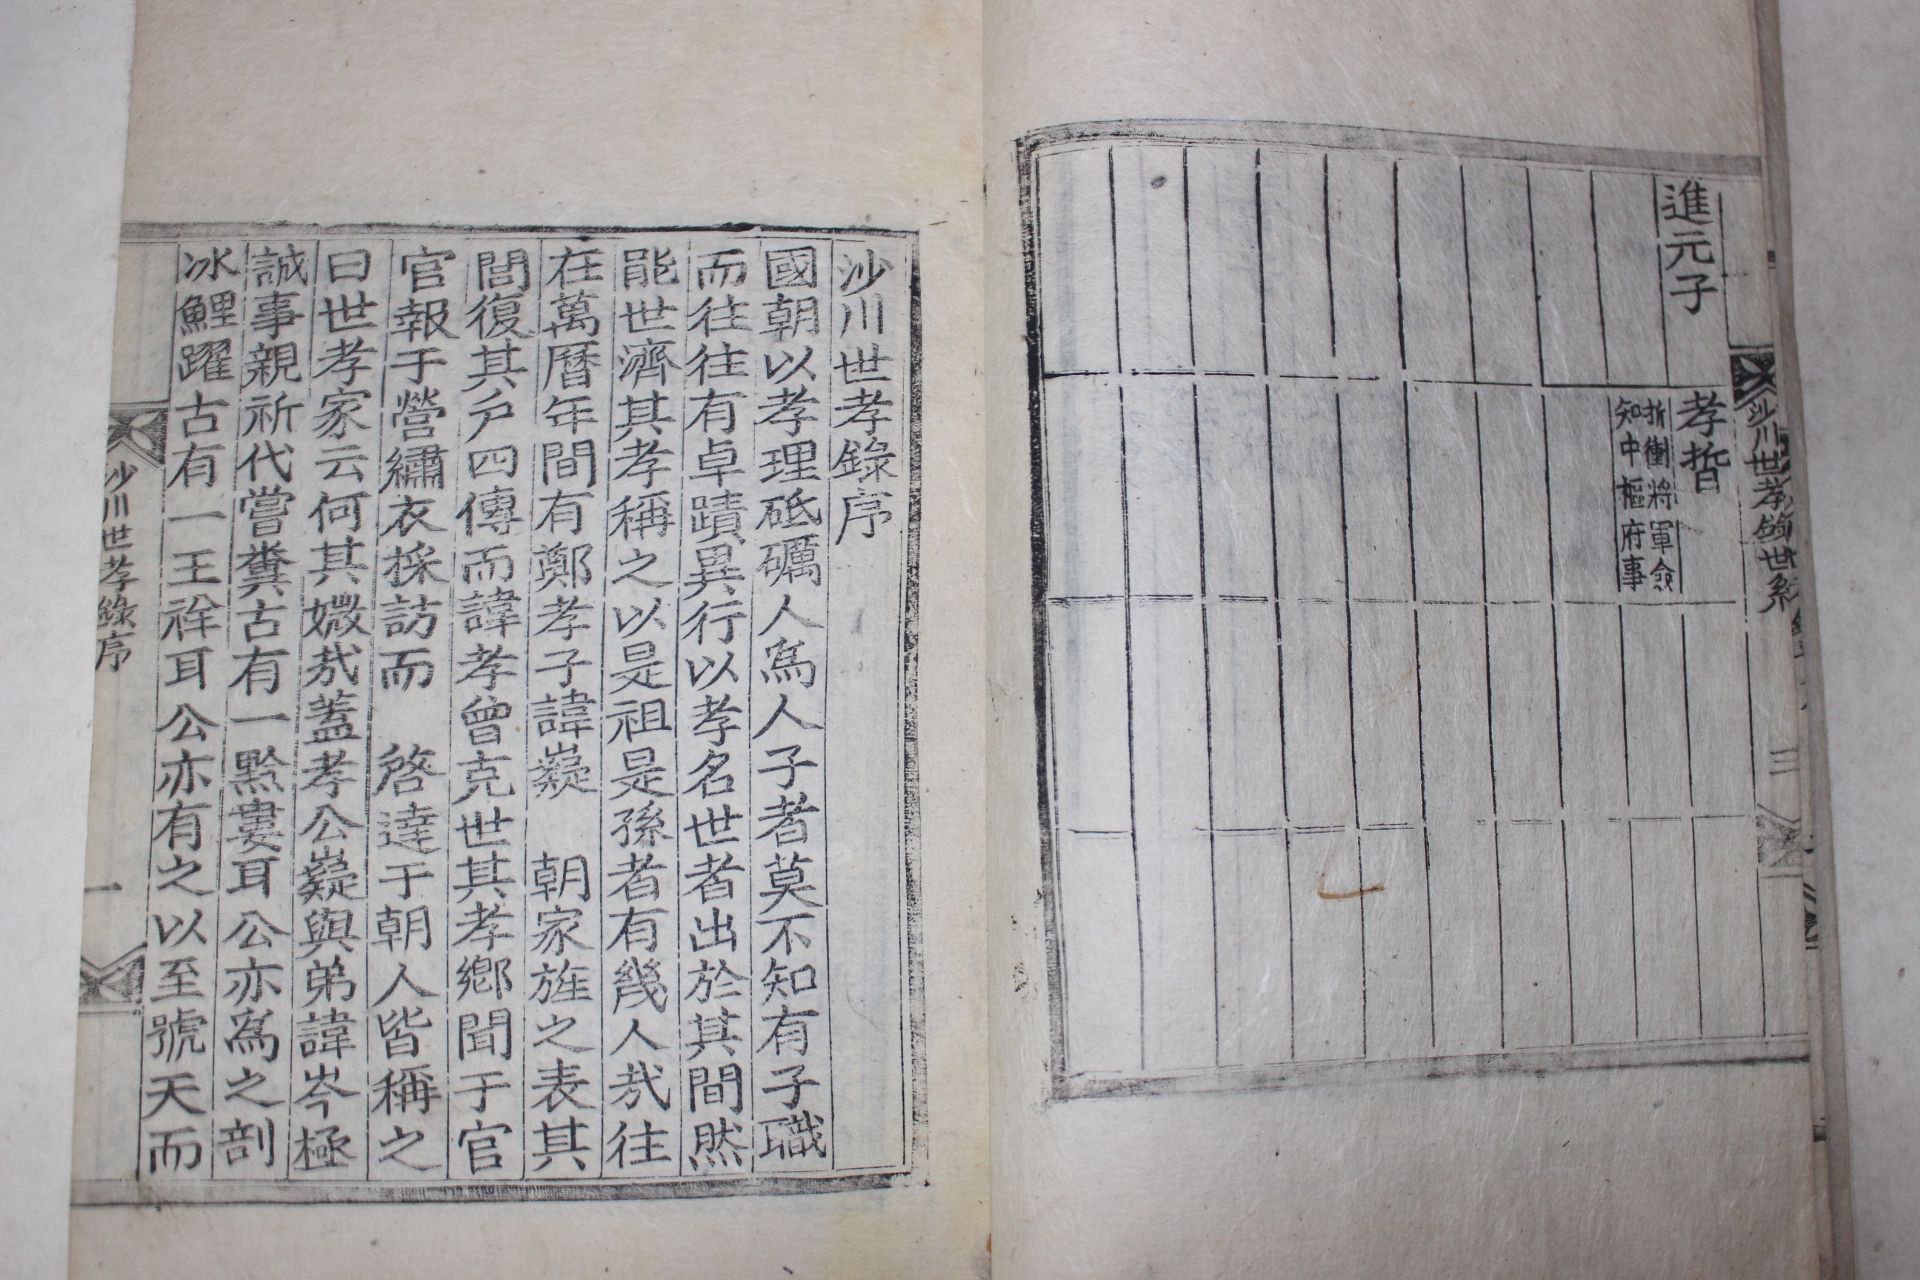 進元子
孝晳
折衝將軍僉
知中樞府事
沙川世孝錄世系
三
沙川世孝錄序
國朝以孝理砥礪人爲人子者莫不知有子職
而往往有卓蹟異行以孝名世者出於其間然
能世濟其孝稱之以是祖是孫者有幾人哉往
在萬曆年間有鄭孝子諱嶷 朝家旌之表其
閭復其戶四傳而諱孝曾克世其孝鄉聞于官
官報于營繡衣採訪而 啓達于朝人皆稱之
曰世孝家云何其媺哉蓋孝公嶷與弟諱岑極
誠事親祈代嘗糞古有一黔婁耳公亦爲之剖
冰鯉躍古有一王祥耳公亦有之以至號天而
沙川世孝錄序
一